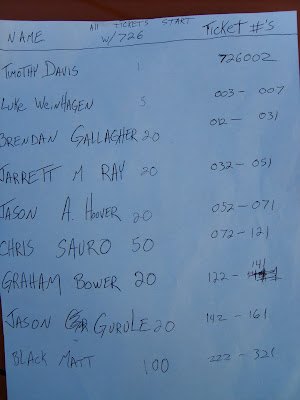 NAME All TICKETS START W/ 726 TICKET #'s
TIMOTHY DAVIS 1 726002
LUKE WEINHAGEN 5 003 - 007
BRENDAN GALLAGHER 20 012 - 031
JARRETT M RAY 20 032 - 051
JASON A. HOOVER 20 052 - 071
CHRIS SAURO 50 072 - 121
GRAHAM BOWER 20 122 - 141
JASON GURULE 20 142 - 161
BLACK MATT 100 222 - 321